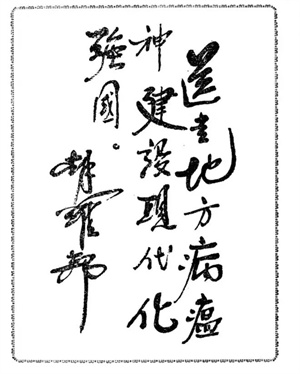 送走地方病瘟
神建设现代化
强國。
胡耀邦